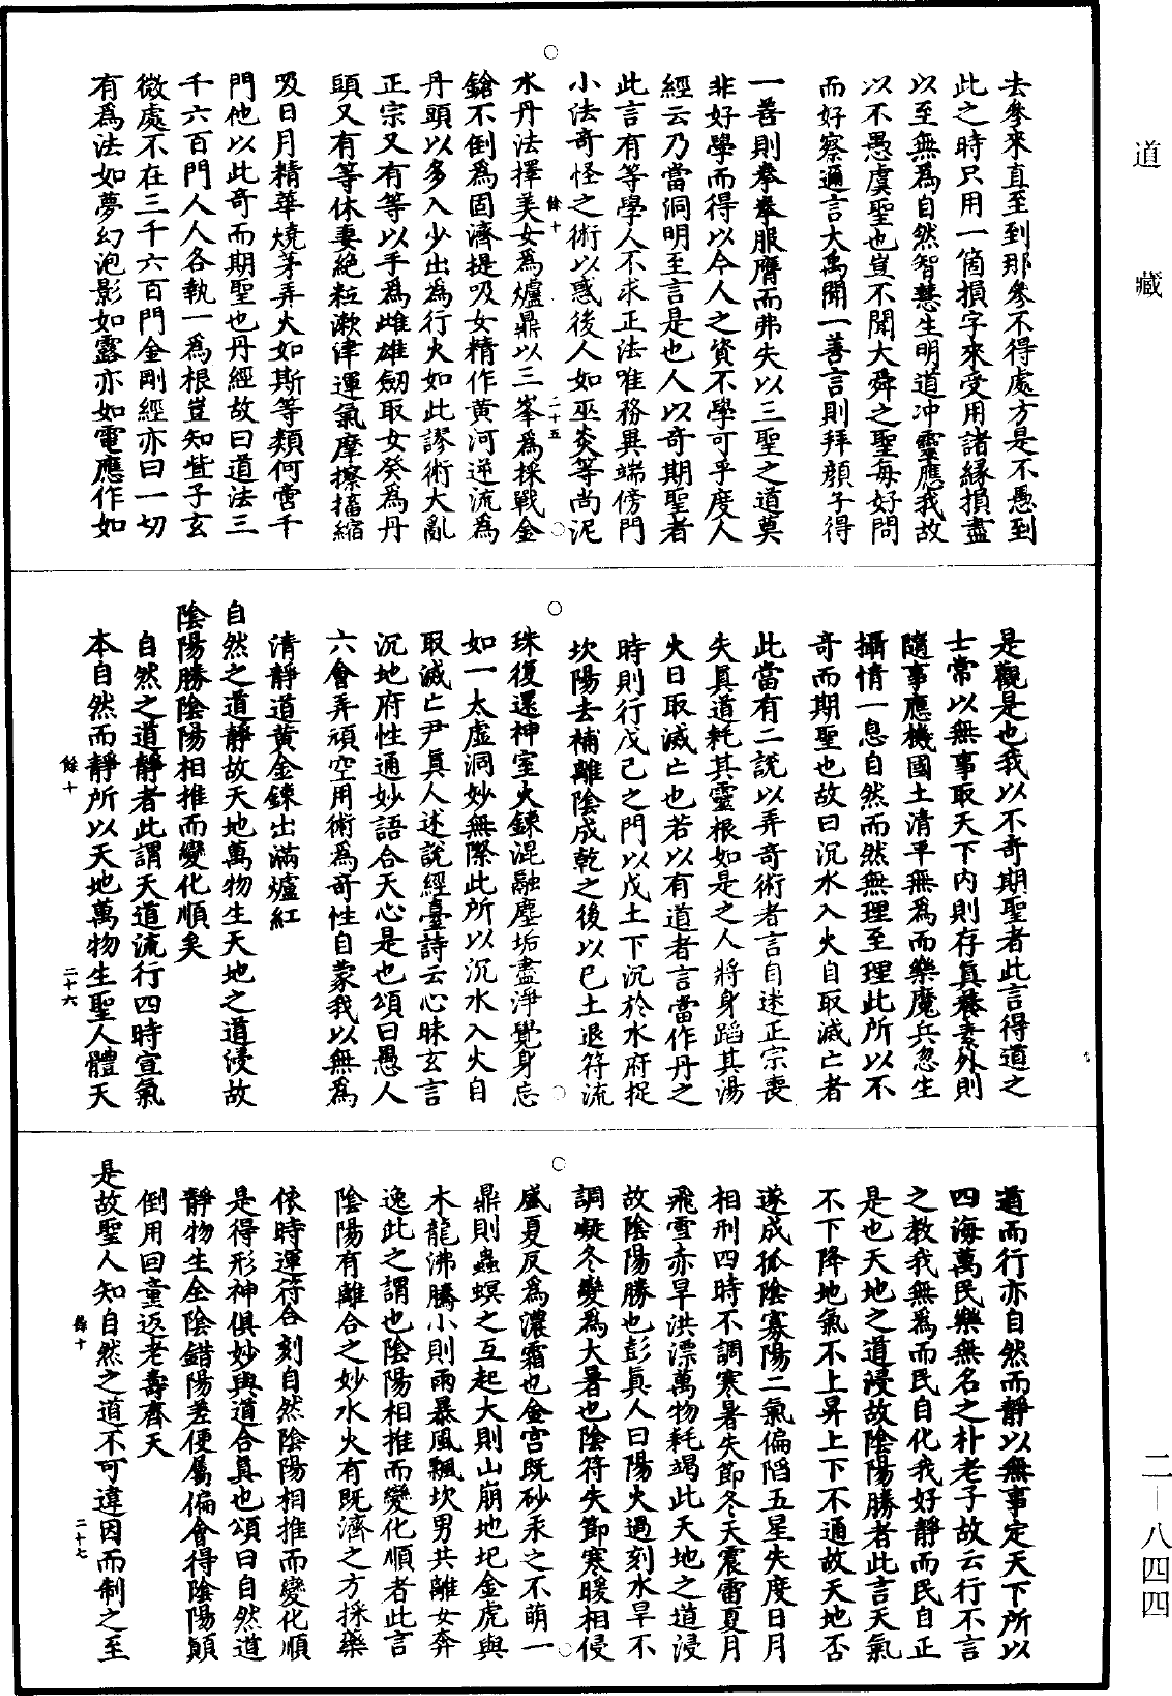 道藏
去參來直至到那參不得處方是不愚到
此之時只用一箇損字來受用諸緣損盡
以至無為自然智慧生明道冲靈應我故
以不愚虞聖也豈不聞大舜之聖每好問
而好察邇言大禹聞一善言則拜顏子得
一善則拳拳服膺而弗失以三聖之道莫
非好學而得以今人之資不學可乎度人
經云乃當洞明至言是也人以奇期聖者
此言有等學人不求正法唯務異端傍門
小法奇怪之術以惑後人如巫炎等尚泥
餘十 二十五
水丹法擇美女為爐鼎以三峯為採戰金
鎗不倒為固濟提吸女精作黃河逆流為
丹頭以多入少出為行火如此謬術大亂
正宗又有等以手為雌雄劒取女癸為丹
頭又有等休妻絕粒漱津運氣摩擦搐縮
吸日月精華燒茅弄火如斯等類何啻千
門他以此奇而期聖也丹經故曰道法三
千六百門人人各執一為根豈知些子玄
微處不在三千六百門金剛經亦曰一切
有為法如夢幻泡影如露亦如電應作如
是觀是也我以不奇期聖者此言得道之
士常以無事取天下內則存真養素外則
隨事應機國土清平無為而樂魔兵忽生
攝情一息自然而然無理至理此所以不
奇而期聖也故曰沉水入火自取滅亡者
此當有二說以弄奇術者言自迷正宗喪
失真道耗其靈根如是之人將身蹈其湯
火日取滅亡也若以有道者言當作丹之
時則行戊己之門以戊土下沉於水府捉
坎陽去補離陰成乾之後以己土退符流
珠復還神室火鍊混融塵垢盡淨覺身忘
如一太虛洞妙無際此所以沉水入火自
取滅亡尹真人述說經臺詩云心昧玄言
沉地府性通妙語合天心是也頌曰愚人
六會弄頑空用術為奇性自蒙我以無為
清靜道黃金鍊出滿爐紅
自然之道靜故天地萬物生天地之道浸故
陰陽勝陰陽相推而變化順矣
自然之道靜者此謂天道流行四時宣氣
本自然而靜所以天地萬物生聖人體天
餘十 二十六
道而行亦自然而靜以無事定天下所以
四海萬民樂無名之朴老子故云行不言
之教我無為而民自化我好靜而民自正
是也天地之道浸故陰陽勝者此言天氣
不下降地氣不上昇上下不通故天地否
遂成孤陰寡陽二氣偏陷五星失度日月
相刑四時不調寒暑失節冬天震雷夏月
飛雪赤旱洪漂萬物耗竭此天地之道浸
故陰陽勝也彭真人曰陽火過刻水旱不
調凝冬變為大暑也陰符失節寒暖相侵
盛夏反為濃霜也金宮既砂汞之不萌一
鼎則蟲螟之互起大則山崩地圮金虎與
木龍沸騰小則雨暴風飄坎男共離女奔
逸此之謂也陰陽相推而變化順者此言
陰陽有離合之妙水火有既濟之方採藥
依時運符合刻自然陰陽相推而變化順
是得形神俱妙與道合真也頌曰自然道
靜物生全陰錯陽差便屬偏會得陰陽顛
倒用回童返老壽齊天
是故聖人知自然之道不可違因而制之至
餘十 二十七
二—八四四